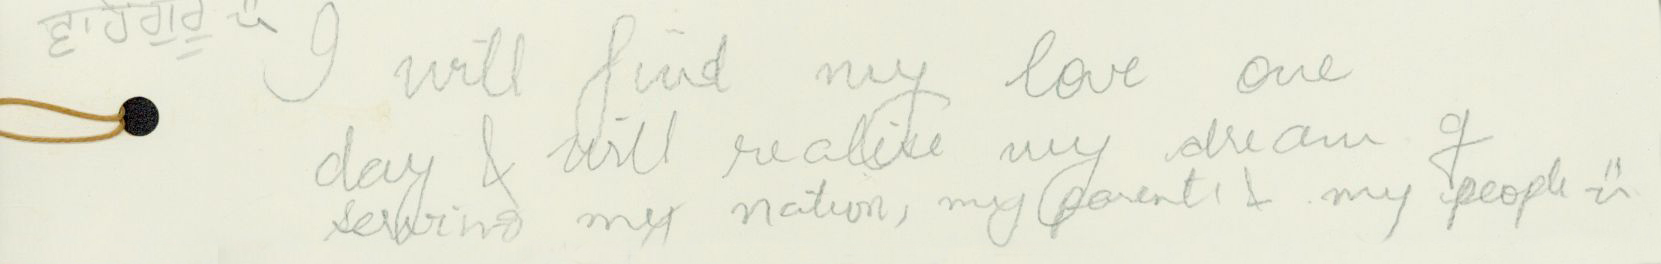 ਵਾਹੇਗੁਰੂ :)
I will find my love one
day & will realise my dream of
serving my nation, my parents & my people :)